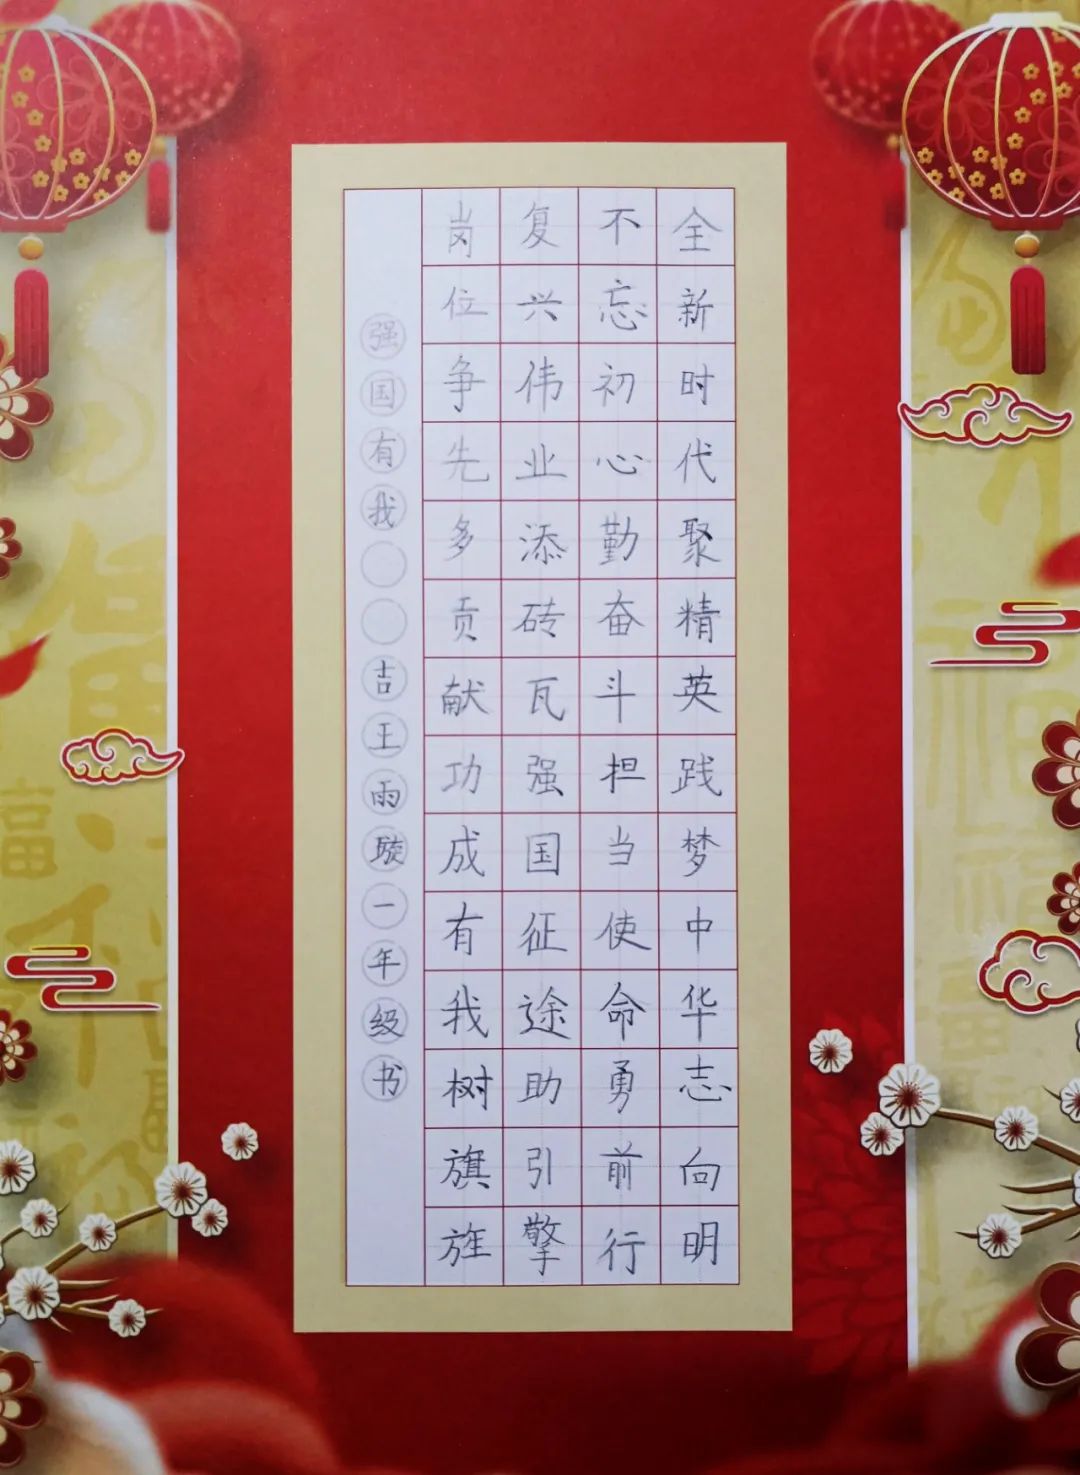 全新时代聚精英践梦中华志向明
不忘初心勤奋斗担当使命勇前行
复兴伟业添砖瓦强国征途助引擎
岗位争先多贡献功成有我树旗旌
强国有我 吉王雨璇一年级书